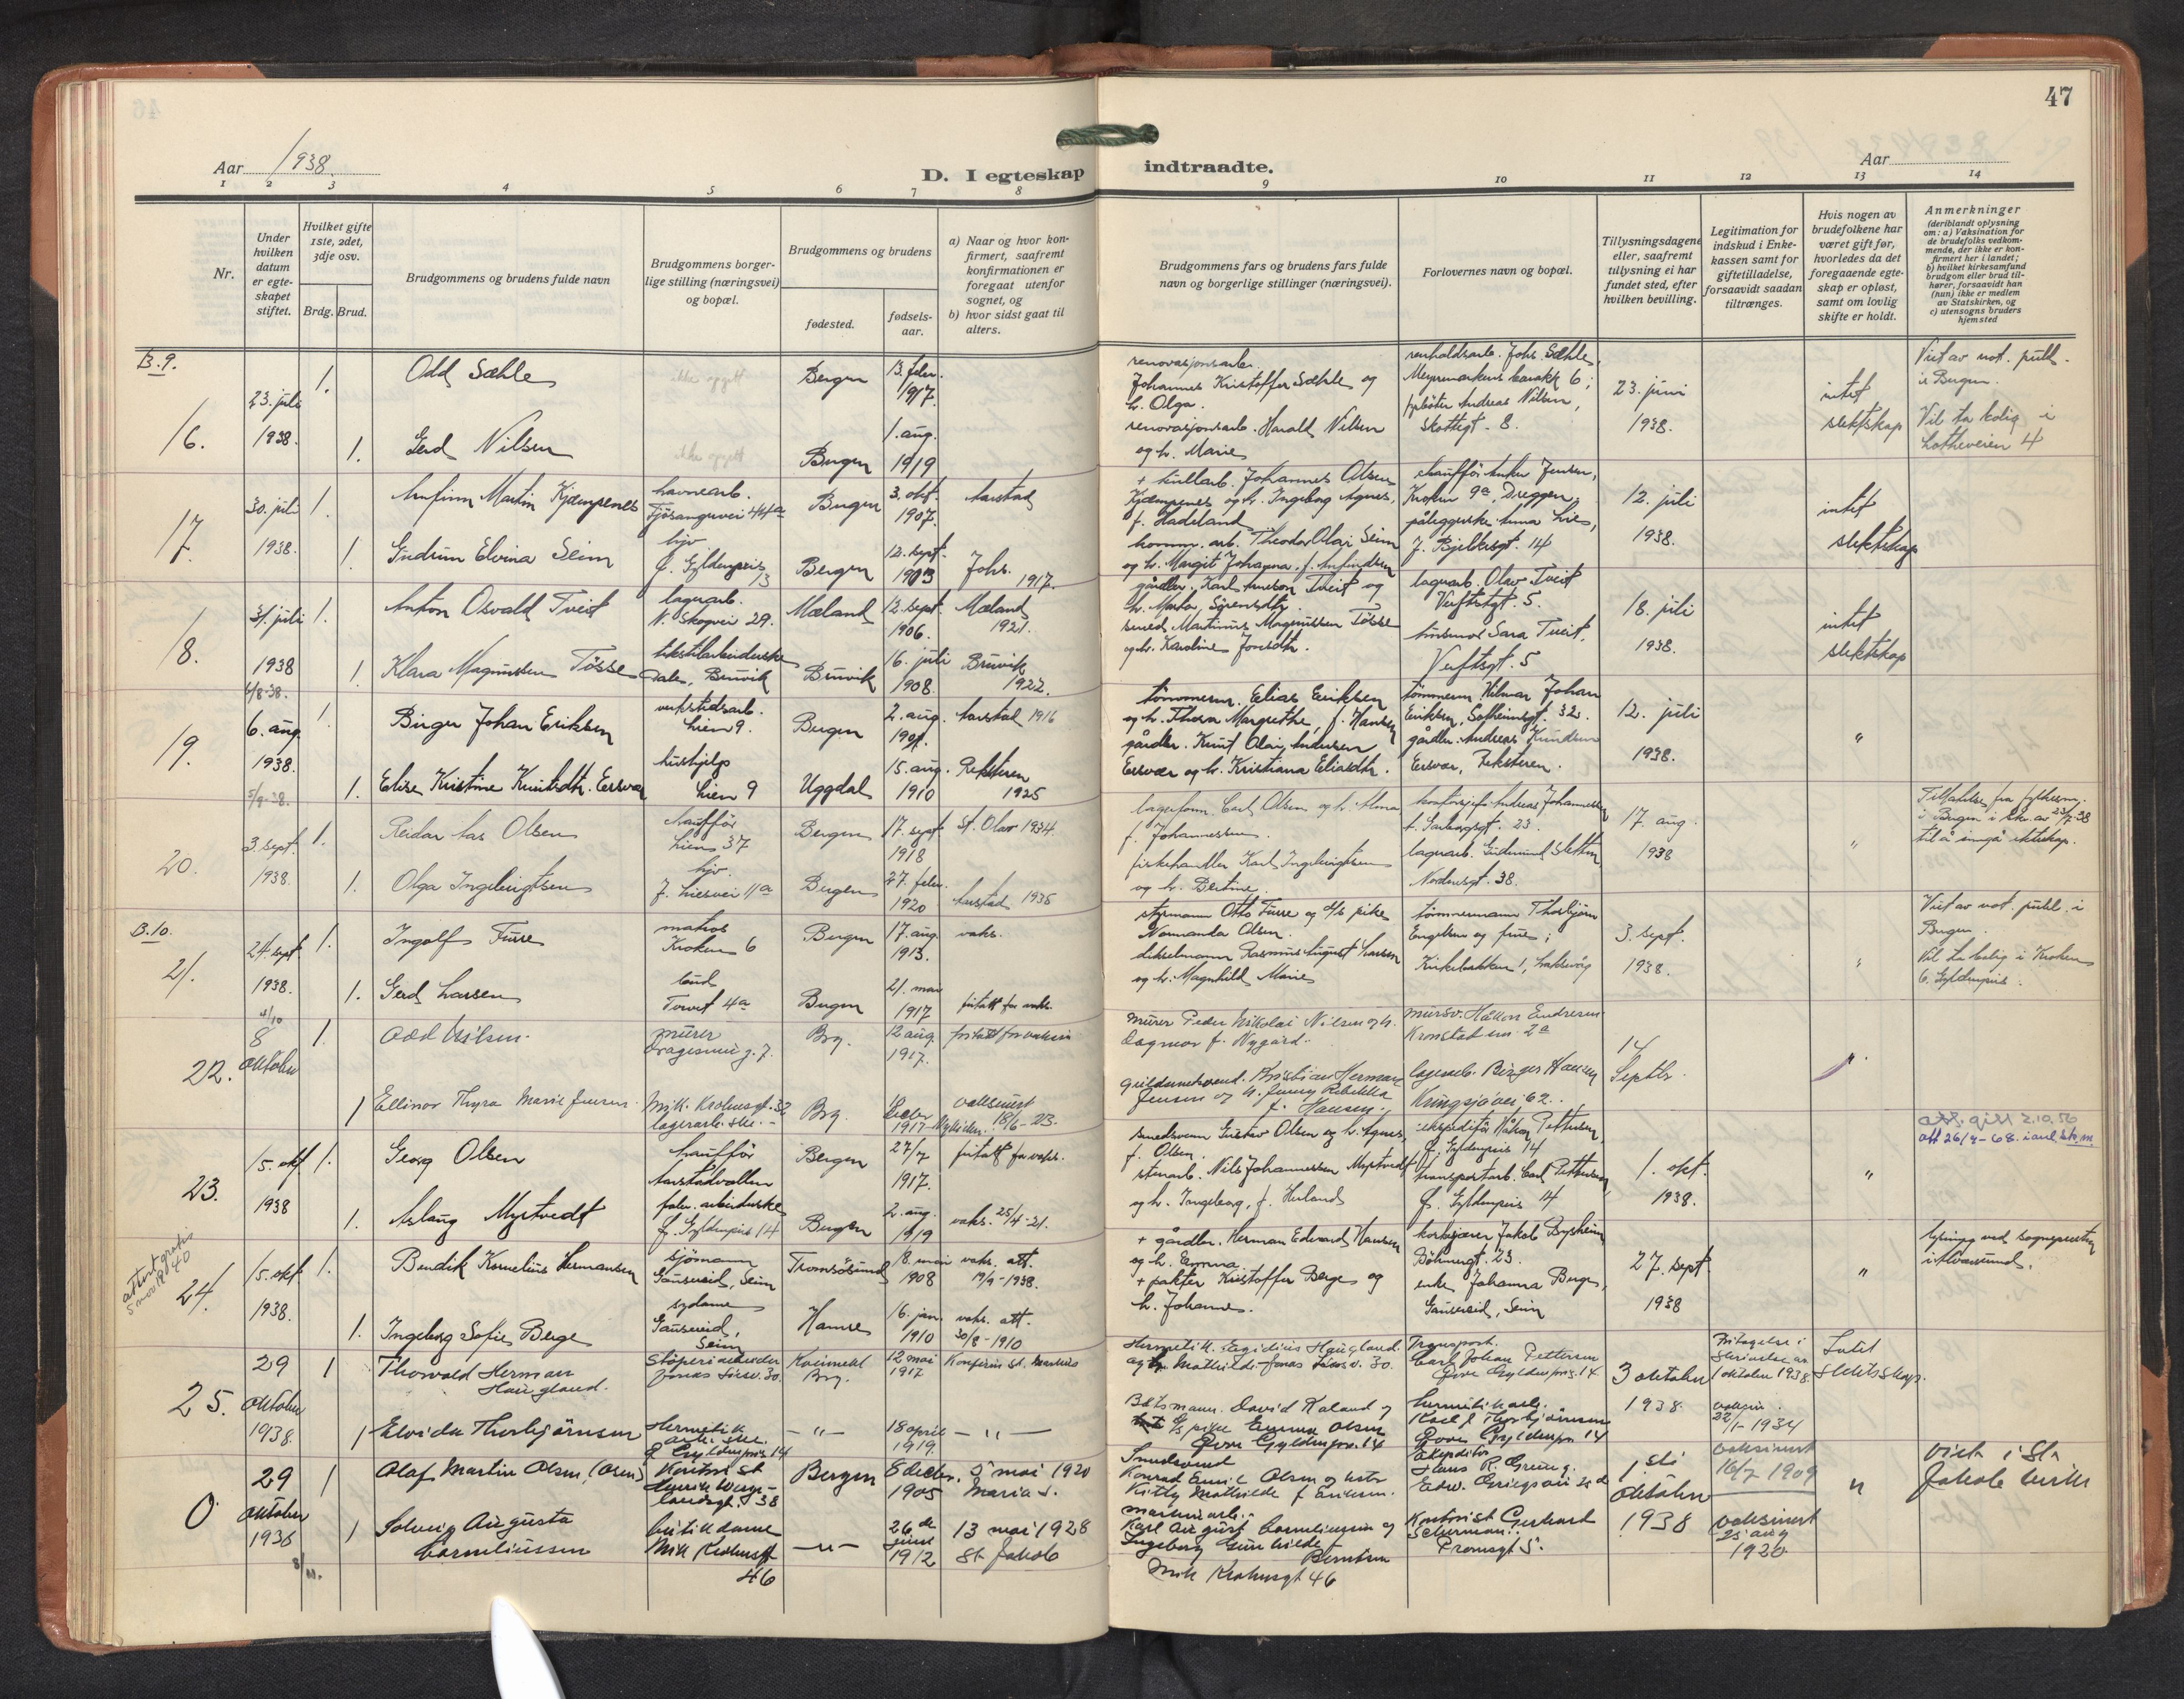 47
Aar 1938.
D. I egteskap indtraadte.
Aar
1 2 3 4 5 6 7 8 9 10 11 12 13 14
Nr.
Under hvilken datum er egte-skapet stiftet.
Hvilket gifte 1ste, 2det, 3dje osv.
Brdg. Brud.
Brudgommens og brudens fulde navn
Brudgommens borger-lige stilling (næringsvei) og bopæl.
Brudgommens og brudens
fødested.
fødsels-aar.
a) Naar og hvor kon-firmert, saafremt konfirmationen er foregaat utenfor sognet, og
b) hvor sidst gaat til alters.
Brudgommens fars og brudens fars fulde navn og borgerlige stillinger (næringsvei).
Forlovernes navn og bopæl.
Tillysningsdagene eller, saafremt tillysning ei har fundet sted, efter hvilken bevilling.
Legitimation for indskud i Enke-kassen samt for giftetilladelse, forsaavidt saadan tiltrænges.
Hvis nogen av brudefolkene har været gift før, hvorledes da det foregaaende egte-skap er opløst, samt om lovlig skifte er holdt.
Anmerkninger
(deriblandt oplysning om: a) Vaksination for de brudefolks vedkom-mende, der ikke er kon-firmert her i landet; b) hvilket kirkesamfund brudgom eller brud til-hører, forsaavidt han (hun) ikke er medlem av Statskirken, og c) utensogns bruders hjemsted
B. 9.
16.
23. juli 1938.
1.
Odd Sæhle
ikke opgitt
Bergen
13. febr. 1917.
renovasjonsarb. Johannes Kristoffer Sæhle og h. Olga.
renholdsarb. Johs. Sæhle, Meyermarkens barakk 6;
23. juni 1938.
intet slektskap
Viet av not. publ. i Bergen.
Vil ta bolig i Lotheveien 4
1.
Gerd Nilsen
ikke opgitt
Bergen
1. aug. 1919
renovasjonsarb. Harald Nilsen og h. Marie
fyrbøter Andreas Nilsen, Skottegt. 8.
17.
30. juli 1938.
1.
Anfinn Martin Kjempenes
havnearb. Fjøsangervei 44a
Bergen
3. okt. 1907.
Aarstad
Johannes Olsen Kjempenes og h. Ingeborg Agnes, f. Hadeland
chauffør Anker Jensen, Kroken 9a, Dreggen;
12. juli 1938.
intet slektskap
1.
Gudrun Elvina Seim
hjv. G. Gyldenpris 13
Bergen
12. sept. 1903
Johs. 1917.
komm. arb. Theodor Olai Seim og h. Margit Johanna, f. Anfindsen
påleggerske Anna Lies, J. Bjelkesgt. 14
18.
31. juli 1938
1.
Anton Osvald Tveit
lagerarb. N. Skogvei 29.
Mæland
12. sept. 1906.
Mæland 1921.
gårdbr. Karl Arneson Tveit og h. Marta, Sørensdtr.
lagerarb. Olav Tveit Verftsgt. 5.
18. juli 1938.
intet slektskap
1.
Klara Magnussen Tøsse
tekstilarbeiderske Dale, Bruvik
Bruvik
16. juli 1908.
Bruvik 1922.
smed Martinus Magnussen Tøsse og h. Karoline Jonsdtr.
Sara Tveit, Verftsgt. 5
6/8-38.
19.
6. aug. 1938.
1.
Birger Johan Eriksen
verkstedsarb. Lien 9.
Bergen
2. aug.
Aarstad 1916
tømmerm. Elias Eriksen og h. Thora Margrethe, f. Hansen
tømmerm. Hilmar Johan Eriksen, Solheimsgt. 32.
12. juli 1938.
"
1.
Elise Kristine Knutsdtr. Eersvær
hushjelp Lien 9
Uggdal
15. aug. 1910
Reksteren 1925
gårdbr. Knut Olai Andersen Eersvær og h. Kristiana Eliasdtr.
gårdbr. Andreas Knudsen Eersvær, Reksteren.
5/9-38.
20.
3. sept. 1938.
1.
Reidar Aas Olsen
chauffør Lien 37
Bergen
17. sept 1918
St. Olav 1934.
lagerform. Carl Olsen og h. Alma f. Johannessen.
kontorsjef Andreas Johannessen
17. aug. 1938
"
til å inngå ekteskap.
1.
Olga Ingebrigtsen
hjv. J. Liesvei 11a
Bergen
27. febr. 1920
Aarstad 1935
fiskehandler Karl Ingebrigtsen og h. Bertine.
lagerarb. Gudmund Sletten Nordnesgt. 38.
B. 10.
21.
24. sept. 1938.
1.
Ingolf Furre
matros Kroken 6
Bergen
17. aug. 1913.
vaks.
styrmann Otto Furre og d/s pike Normanda Olsen.
tømmermann Thorbjørn Engelsen og frue; Kirkebakken 1, Laksevåg
3. sept. 1938.
"
Viet av not. publ. i Bergen.
Vil ta bolig i Kroken 6, Gyldenpris.
1.
Gerd Larsen
bud Torvet 4a
Bergen
21. mai 1917
fritatt for vaks.
dikselmann Rasmus August Larsen og h. Magnhild Marie
22.
8 oktober
1.
Odd Nilsen.
murer
Brg.
12 aug. 1917.
fritatt for vaksin
murer Peder Nikolai Nilsen og h. Dagmar f. Nygård.
mursv. Håkon Endresen Kronstad 2a
14 Septbr.
"
1
Ellinor Thyra Marie Jensen
Mik. Krohnsgt. 32 lagerarb.ske.
Brg.
vaksinert 18/6-23.
Kristian Herman Jensen og h. Jenny Rebekka f. Hansen.
lagerarb. Birger Hansen Kringsjåvei 62.
att. gitt 2.10.56
att 26/4-68.
23.
15. okt. 1938
1.
Georg Olsen
chauffør Aarstadvollen
Bergen
27/7 1917.
fritatt for vaks.
smedsvenn Gustav Olsen og h. Agnes, f. Olsen.
ekspeditør Håkon Pettersen, G. Gyldenpris 14
1. okt. 1938.
"
1.
Aslaug Myrtvedt
fabr. arbeiderske G. Gyldenpris 14
Bergen
2. aug. 1919
vaks. 25/4-21.
stenarb. Nils Johannessen Myrtvedt og h. Ingeborg, f. Herland
transportarb. Carl Pettersen, G. Gyldenpris 14
attest gratis
24.
15. okt. 1938.
1.
Bendik Kornelius Hermansen
sjømann Gausereid, Seim
Tromsøsund
18. mai 1908
vaks. att. 19/9-1938.
+ gårdbr. Herman Edvard Hansen og h. Emma.
korkskjærer Jakob Bysheim Böhmergt. 23.
27. sept. 1938
"
lysning ved sognepresten i Alversund.
1.
Ingeborg Sofie Berge
sydame Gausereid, Seim
Hamre
16. jan. 1910
vaks. att. 30/8-1910
+ pakter Kristoffer Berge og h. Johanne.
enke Johanna Berge, Gausereid, Seim
25.
29 oktober 1938.
1
Thorvald Herman Haugland.
Støperiarbeider Jonas Liesv. 30.
Brg.
12 mai 1917
Konfirm St. Markus
Hermetik. Egidius Haugland. og h. Mathilde Jonas Liesv. 30.
Transport. Carl Johan Pettersen Øvre Gyldenpris 14
3 oktober 1938.
Fritagelse i skrivelse av 1 oktober 1938.
Intet slektskap.
1
Elvida Thorbjørnsen
Hermetik arb.ske. Ø Gyldenpris 14
— " —
18 april 1919.
— " —
Båtsmann. David Kaland og pike Emma Olsen Øvre Gyldenpris 14
hermetikarb. Karl J Thorbjørnsen Øvre Gyldenpris 14
vaksin. 22/1-1934
0
29 oktober 1936
1
Olaf Martin Olsen, (Osen)
Kontorist Henrik Wergelandsgt. 38
Bergen
8 decbr. 1905
5 mai 1920 Maria k.
Smedsvend Konrad Emil Olsen og hstr Kitty Mathilde f Eriksen.
Ekspeditør Hans R. Grung. Edv. Griegs vei
1 ste oktober 1938
vaksinert 16/7 1909
"
Viet i St. Jakob kirke
1
Solveig Augusta Corneliussen
butikdame Mik Krohnsgt 46
— " —
26 de juni 1912
13 mai 1928 St Jakob
maskinarb. Karl August Corneliussen og Ingeborg Gunhilde f Berntsen Mik Krohnsgt 46
Kontorist Gerhard Scherman. Promsgt 5.
vaksinert 25 aug 1920